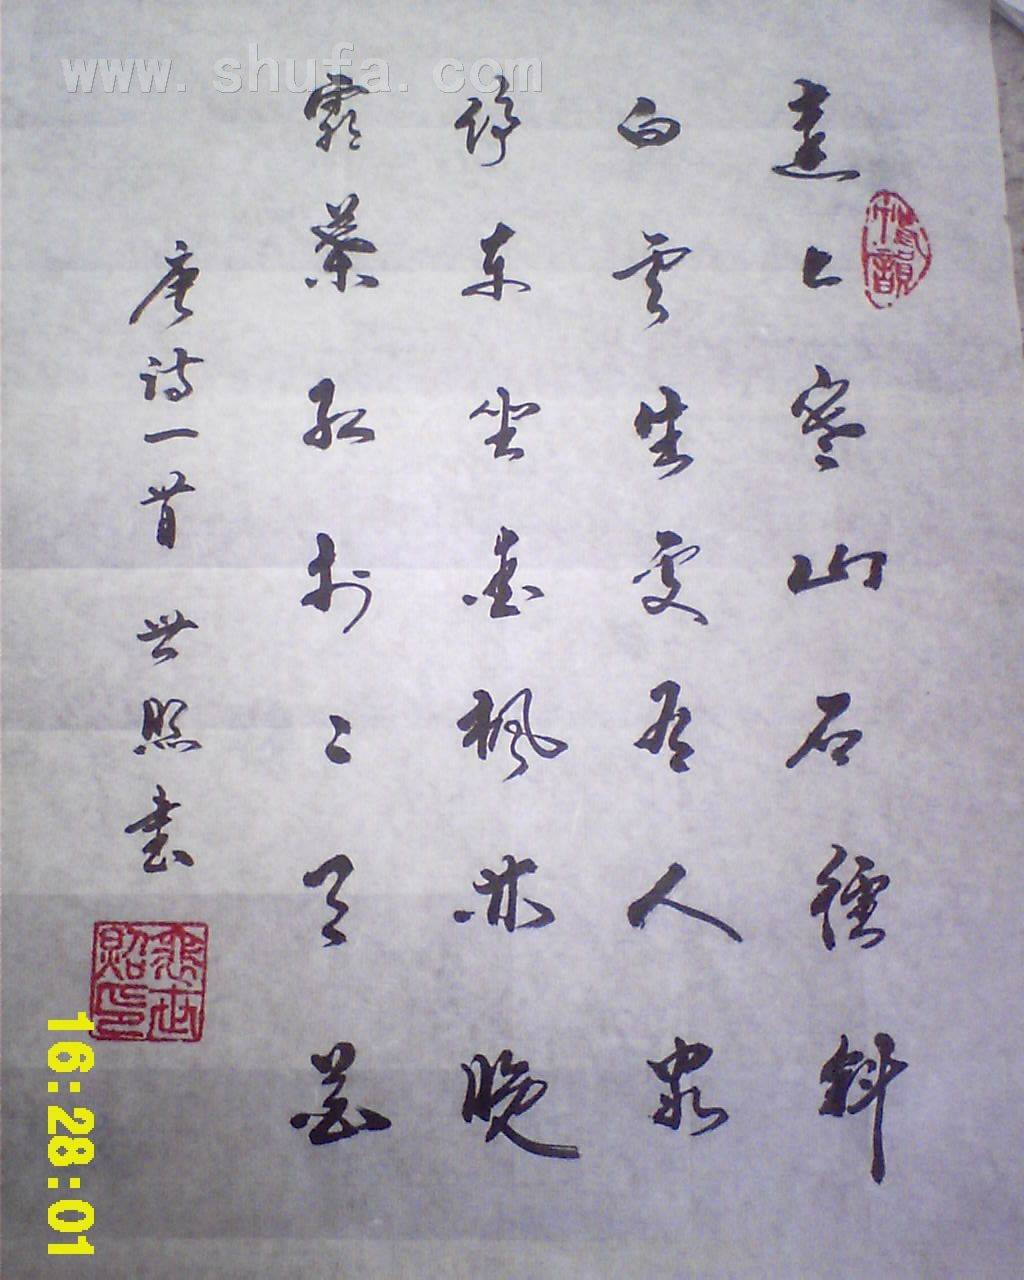 www.shufa.com
遠上寒山石徑斜
白雲生處有人家
停車坐愛楓林晚
霜葉紅於二月花
唐詩一首 世照書
16:28:01